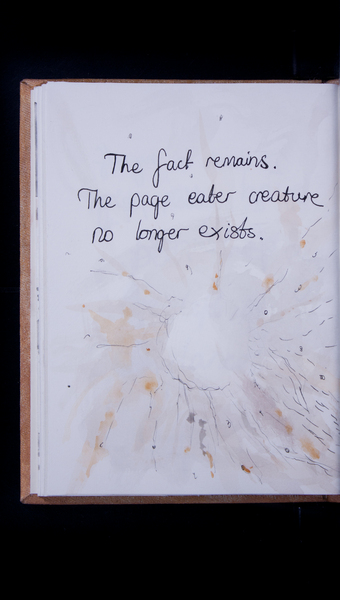 The fact remains.
The page eater creature
no longer exists.